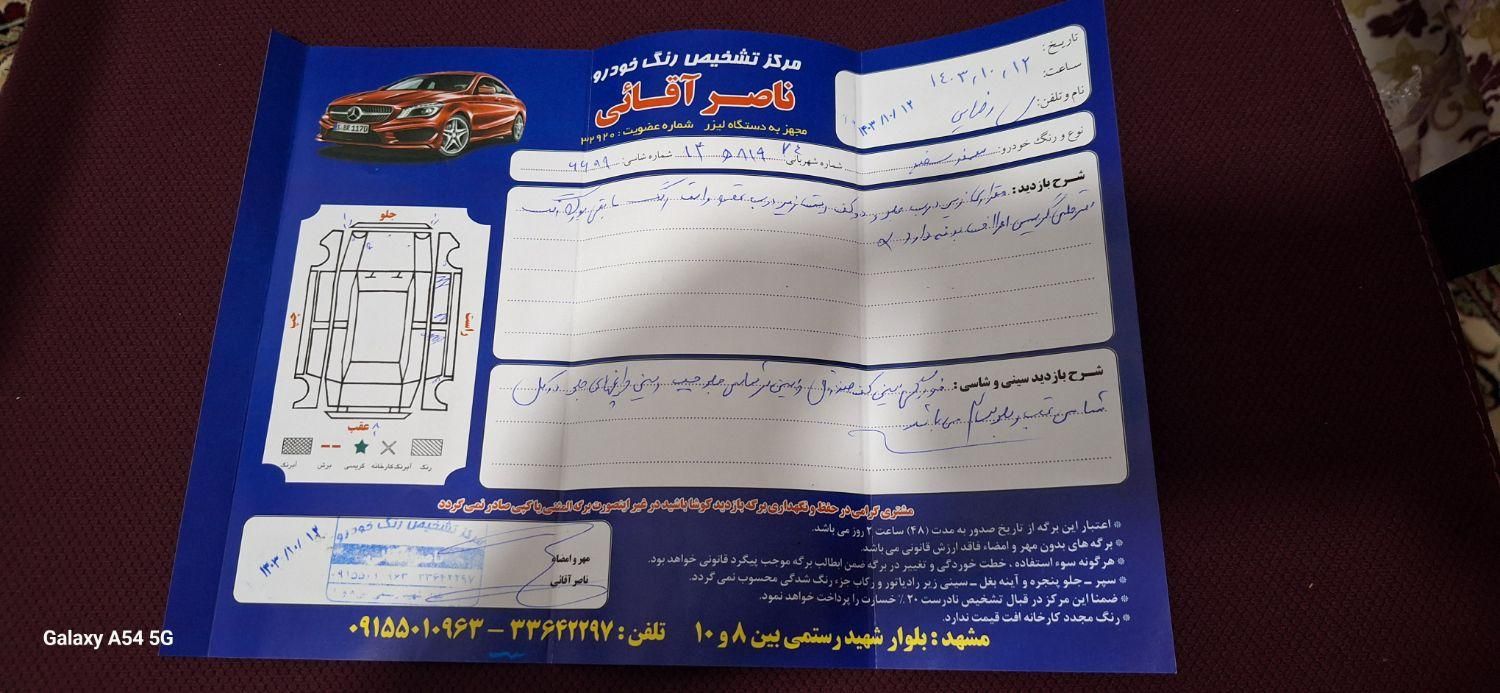 مرکز تشخیص رنگ خودرو
ناصر آقائی
مجهز به دستگاه لیزر شماره عضویت : ۳۲۹۲۰
تاریخ : ۱۴۰۳٫۱۰٫۱۲
ساعت:
نام و تلفن: رضایی
۱۴۰۳/۱۰/۱۲
نوع و رنگ خودرو: سمند سفید شماره شهربانی: ۷۴ ۵۸۱۹ ۱۴ شماره شاسی: ۶۶۹۹
شرح بازدید : مقداری زیر درب جلو و
شرح بازدید سینی و شاسی : خوردگی سینی کف صندوق و سینی
شاسی عقب و جلو سالم می باشد
جلو
چپ
راست
عقب
رنگ آبرنگ کارخانه گریسی برش آبرنگ
مشتری گرامی در حفظ و نگهداری برگه بازدید کوشا باشید در غیر اینصورت برگه المثنی یا کپی صادر نمی گردد
* اعتبار این برگه از تاریخ صدور به مدت (۴۸) ساعت ۲ روز می باشد.
* برگه های بدون مهر و امضاء فاقد ارزش قانونی می باشد.
* هرگونه سوء استفاده ، خطت خوردگی و تغییر در برگه ضمن ابطالب برگه موجب پیگرد قانونی خواهد بود.
* سپر ـ جلو پنجره و آینه بغل ـ سینی زیر رادیاتور و رکاب جزء رنگ شدگی محسوب نمی گردد.
* ضمنا این مرکز در قبال تشخیص نادرست ۲۰٪ خسارت را پرداخت خواهد نمود.
* رنگ مجدد کارخانه افت قیمت ندارد.
مهر و امضاء
ناصر آقائی
مرکز تشخیص رنگ خودرو
۰۹۱۵۵۰۱۰۹۶۳ ۳۳۶۴۲۲۹۷
۱۴۰۳/۱۰/۱۲
مشهد : بلوار شهید رستمی بین ۸ و ۱۰ تلفن : ۳۳۶۴۲۲۹۷ – ۰۹۱۵۵۰۱۰۹۶۳
Galaxy A54 5G